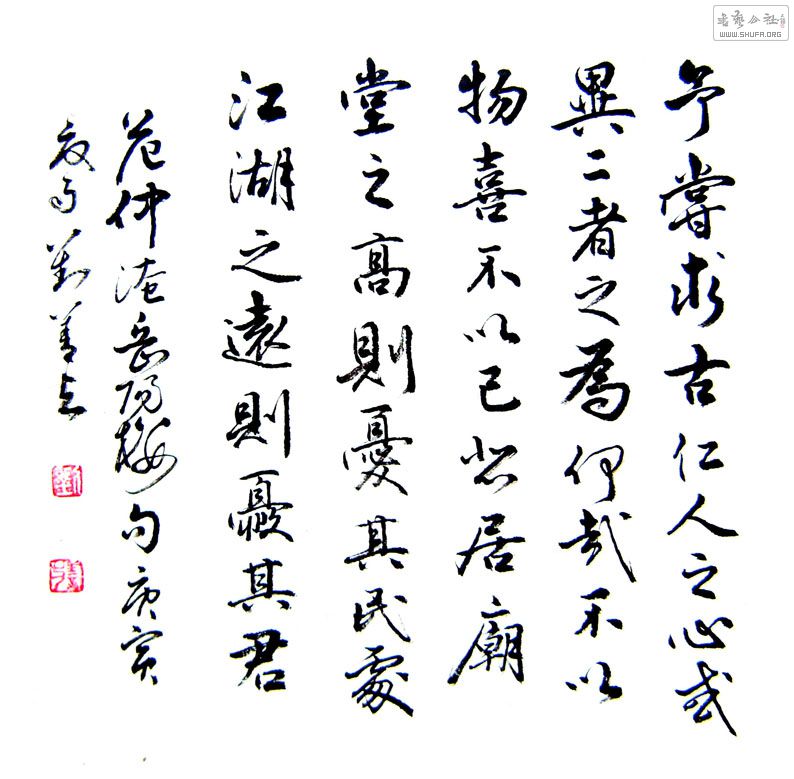 予嘗求古仁人之心或
異二者之為何哉不以
物喜不以己悲居廟
堂之高則憂其民處
江湖之遠則憂其君
范仲淹岳陽樓句庚寅
劉
書藝公社
WWW.SHUFA.ORG